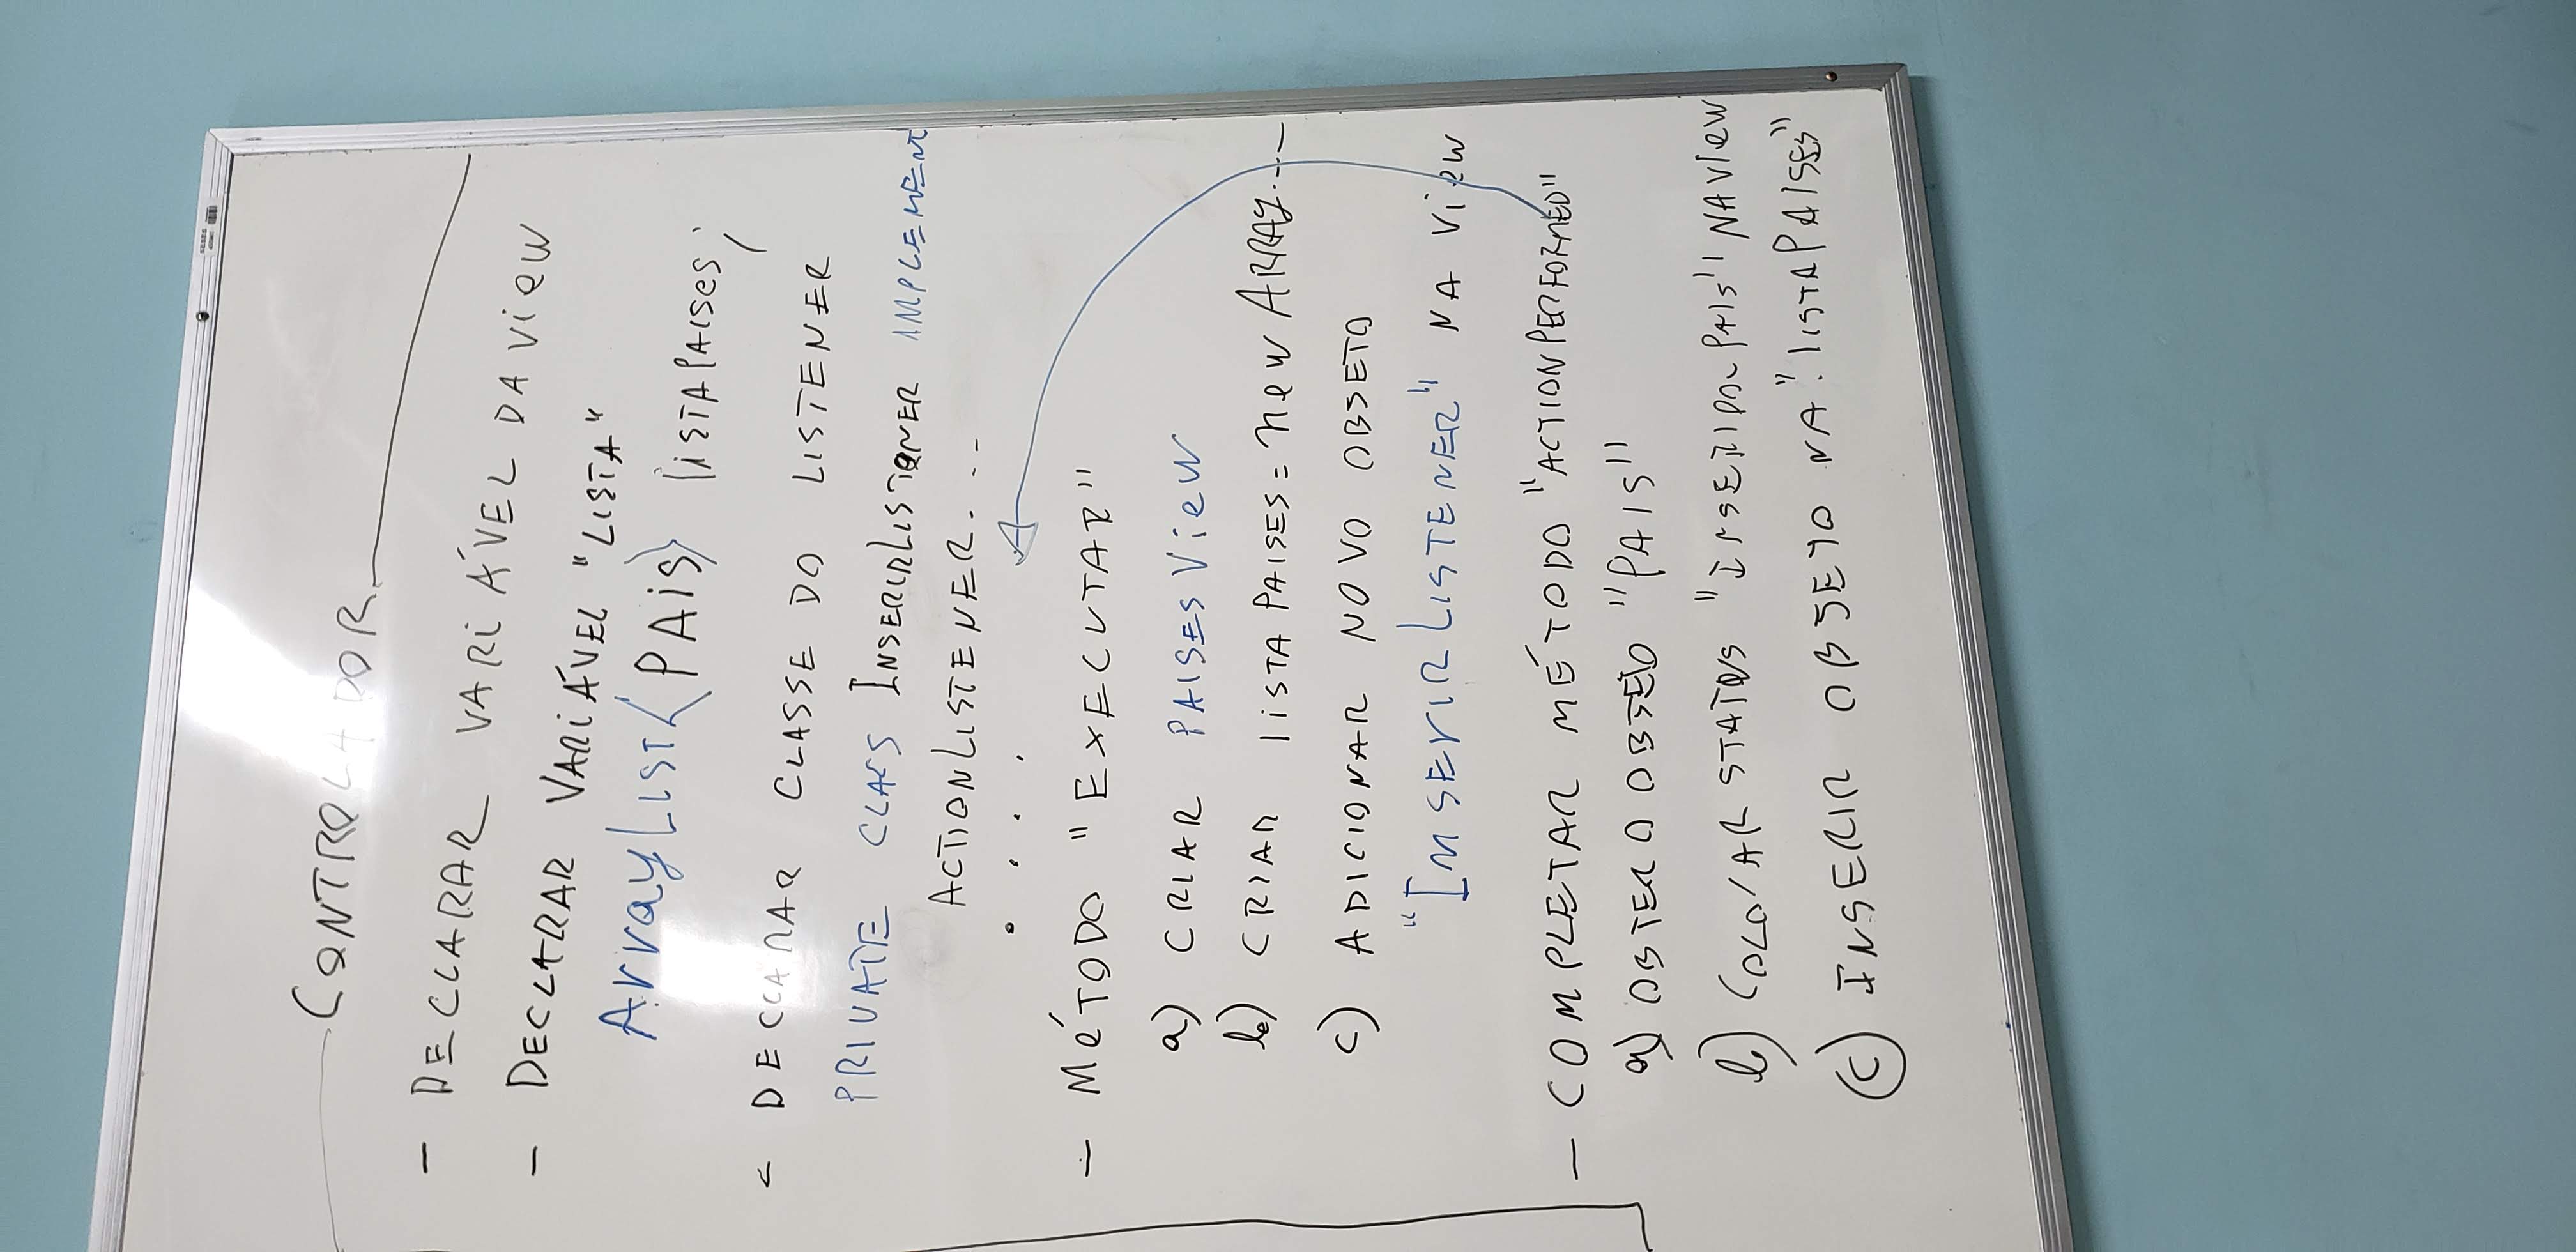 CONTROLADOR
- DECLARAR VARIÁVEL DA View
- DECLARAR VARIÁVEL "LISTA"
ArrayList<PAis> listaPaises;
- DECLARAR CLASSE DO LISTENER
PRIVATE CLASS InserirListener IMPLEMENT
ACTIONLISTENER. ...
. . . .
- MÉTODO "EXECUTAR"
a) CRIAR PAISESView
b) CRIAR listaPAISES = new ARRAY....
c) ADICIONAR NOVO OBJETO
"InserirListener" NA View
- COMPLETAR MÉTODO "ACTIONPERFORMED"
a) OBTER O OBJETO "PAIS"
b) COLOCAR STATUS "INSERIDO PAIS" NA VIew
c) INSERIR OBJETO NA "listaPAISES"